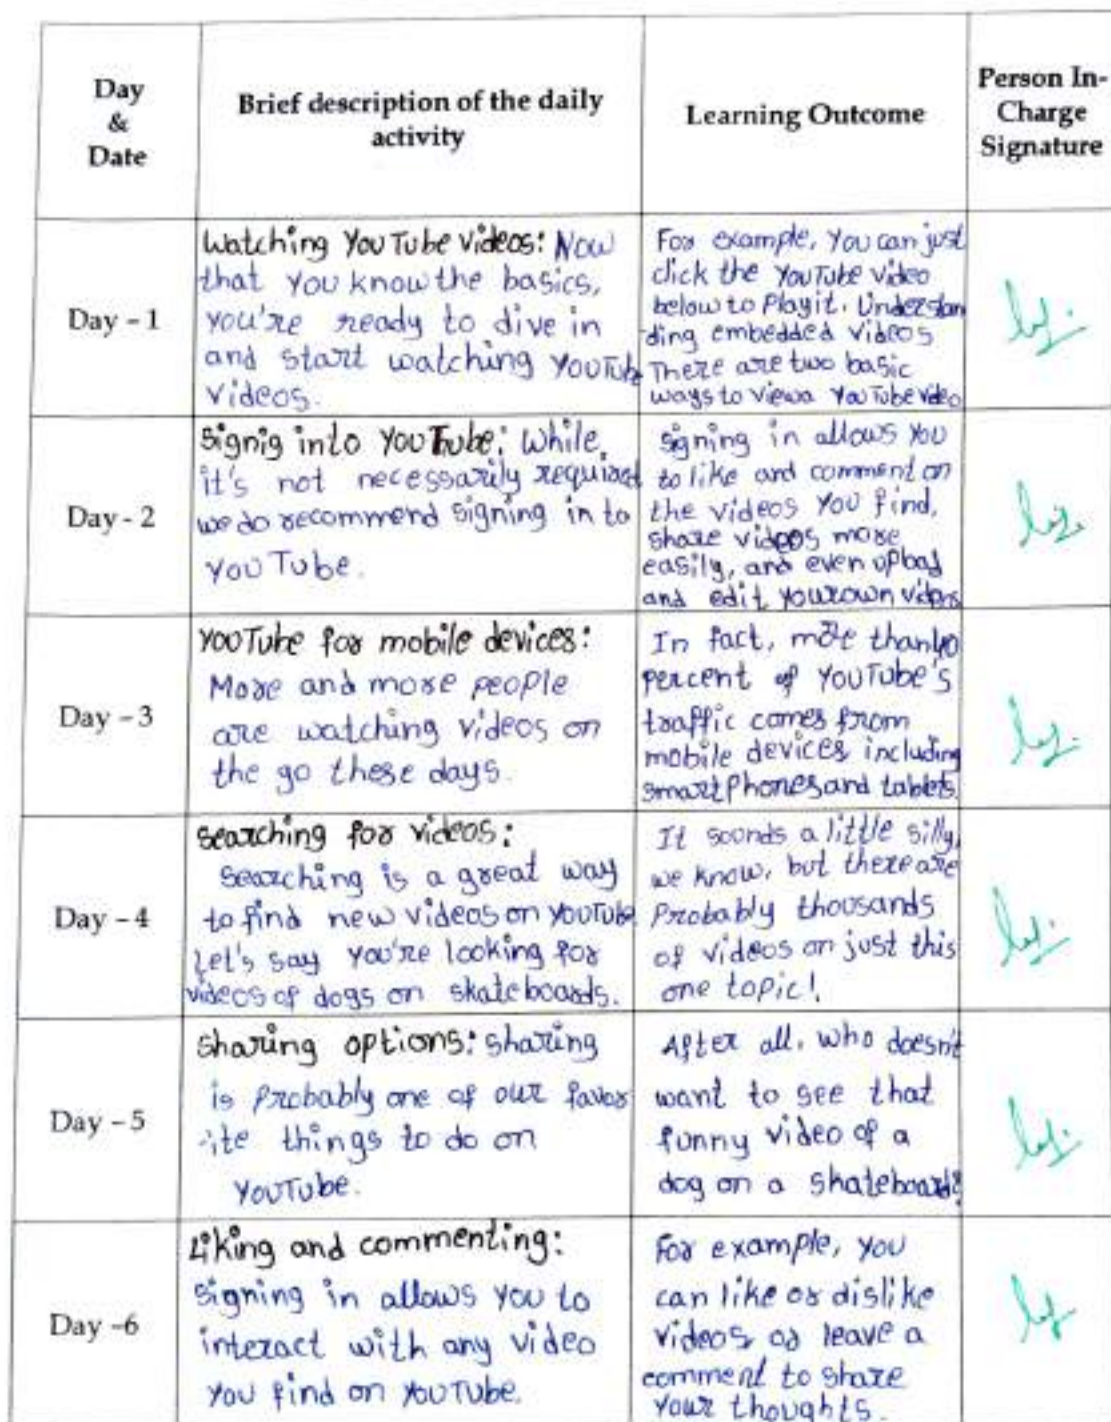 Day
&
Date
Brief description of the daily
activity
Learning Outcome
Person In-
Charge
Signature
Day – 1
Watching YouTube Videos: Now
that you know the basics,
you're ready to dive in
and start watching YouTube
Videos.
For example, you can just
click the YouTube video
below to Play it. Understan
ding embedded videos
There are two basic
ways to view a YouTube video
Day - 2
Signig into YouTube: While
it's not necessarily required
we do recommend signing in to
YouTube.
Signing in allows you
to like and comment on
the videos you find,
share videos more
easily, and even upload
and edit your own videos
Day – 3
YouTube for mobile devices:
More and more people
are watching videos on
the go these days.
In fact, more than 40
percent of YouTube's
traffic comes from
mobile devices including
smartphones and tablets.
Day – 4
Searching for videos:
Searching is a great way
to find new videos on YouTube
Let's say you're looking for
videos of dogs on skateboards.
It sounds a little silly,
we know, but there are
Probably thousands
of videos on just this
one topic!
Day – 5
Sharing options: Sharing
is Probably one of our favor
-ite things to do on
YouTube.
After all, who doesn't
want to see that
funny video of a
dog on a skateboard?
Day –6
Liking and commenting:
Signing in allows you to
interact with any video
you find on YouTube.
For example, you
can like or dislike
videos or leave a
comment to share
your thoughts.